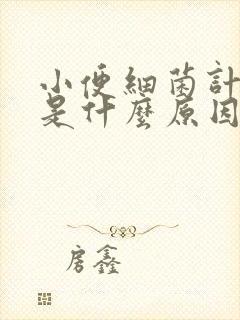 小便細菌計
是什麼原因
房鑫